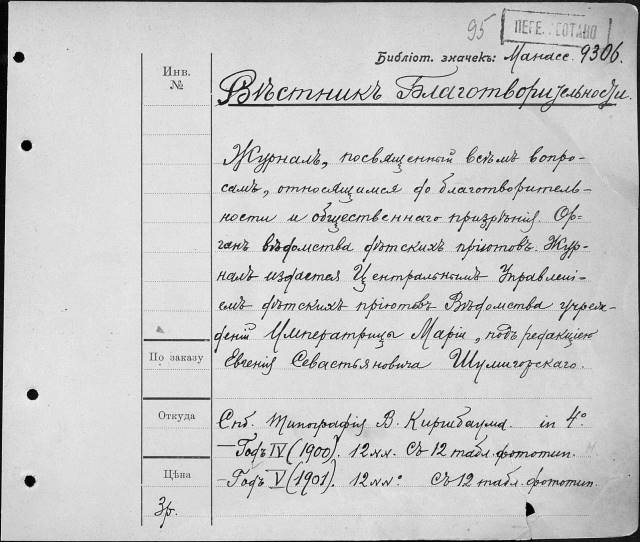 95 ПЕРЕ
Библіот. значекъ: Манасс. 9306.
Инв.
№
Вѣстникъ Благотворительности.
Журналъ, посвященный всѣмъ вопро-
самъ, относящимся до благотворитель-
ности и общественнаго призрѣнія. Ор-
ганъ вѣдомства дѣтскихъ пріютовъ. Жур-
налъ издается Центральнымъ Управлені-
емъ дѣтскихъ пріютовъ Вѣдомства учреж-
деній Императрицы Маріи, подъ редакціею
По заказу
Евгенія Севастьяновича Шумигорскаго.
Откуда
Спб. Типографія В. Киршбаума. in 4°.
—Годъ IV (1900). 12 №№. Съ 12 табл. фототип.
Цѣна
—Годъ V (1901). 12 №№. Съ 12 табл. фототип.
3 р.